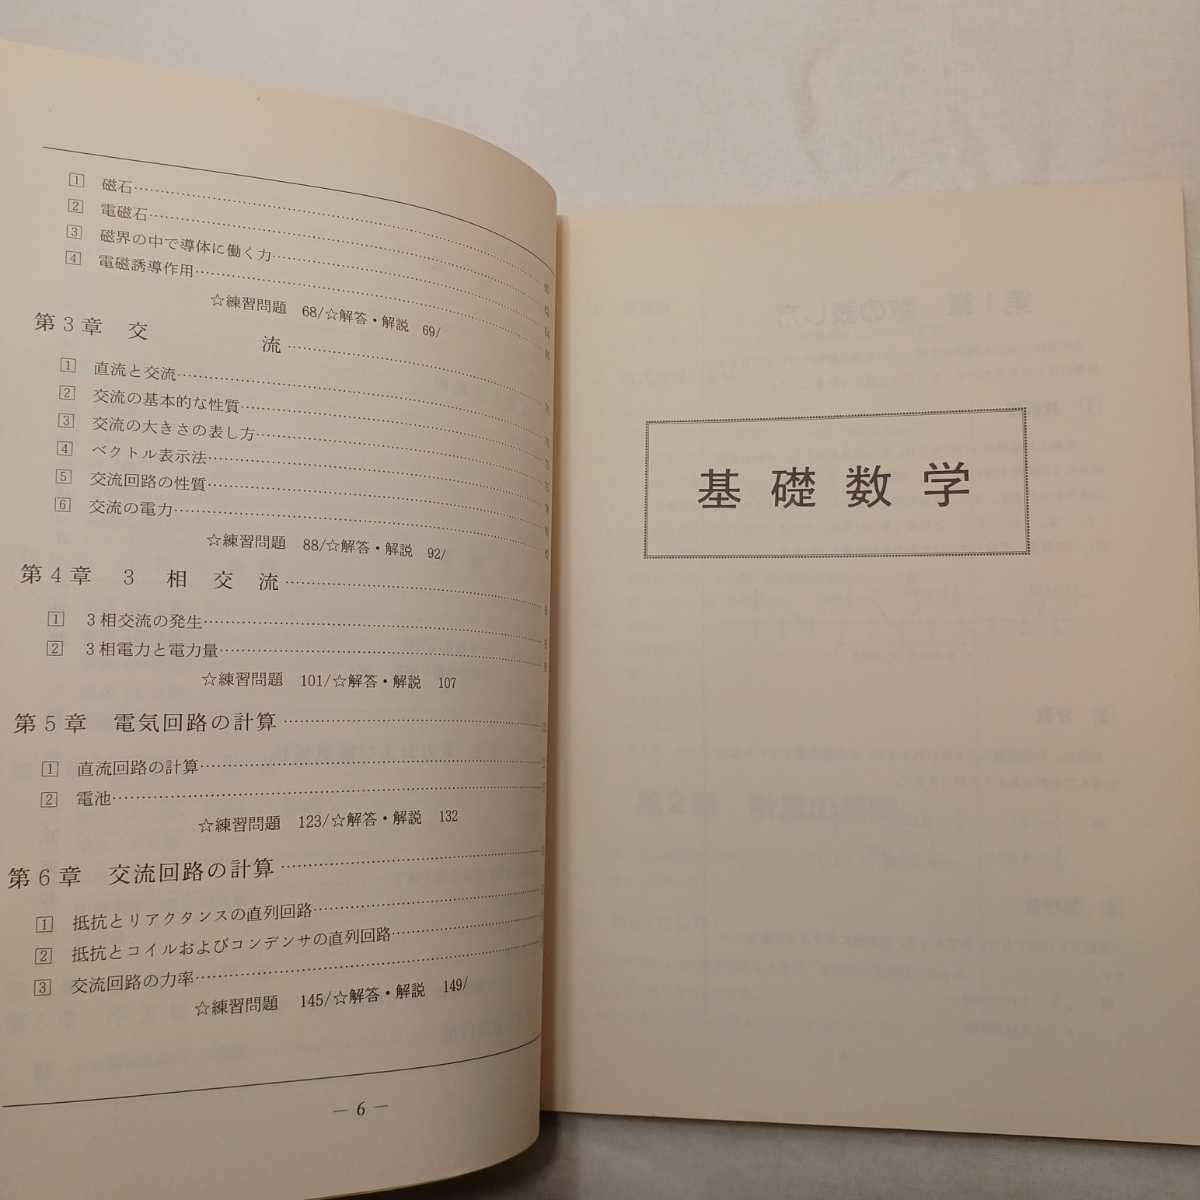 1 磁石
2 電磁石
3 磁界の中で導体に働く力
4 電磁誘導作用
☆練習問題 68/☆解答・解説 69/
第3章 交 流
1 直流と交流
2 交流の基本的な性質
3 交流の大きさの表し方
4 ベクトル表示法
5 交流回路の性質
6 交流の電力
☆練習問題 88/☆解答・解説 92/
第4章 3 相 交 流
1 3相交流の発生
2 3相電力と電力量
☆練習問題 101/☆解答・解説 107
第5章 電気回路の計算
1 直流回路の計算
2 電池
☆練習問題 123/☆解答・解説 132
第6章 交流回路の計算
1 抵抗とリアクタンスの直列回路
2 抵抗とコイルおよびコンデンサの直列回路
3 交流回路の力率
☆練習問題 145/☆解答・解説 149/
― 6 ―
基礎数学